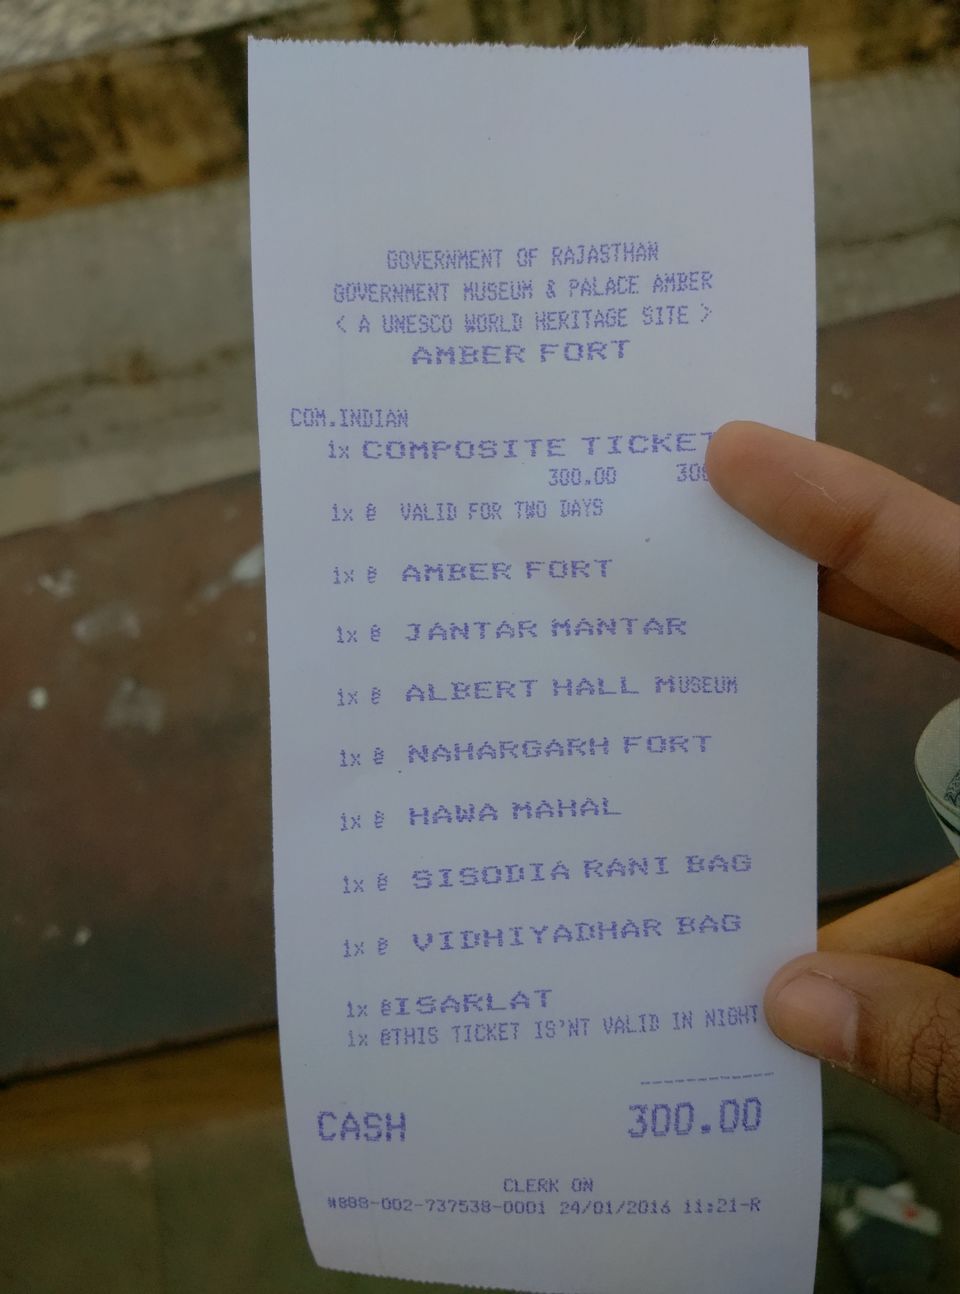 GOVERNMENT OF RAJASTHAN
GOVERNMENT MUSEUM & PALACE AMBER
< A UNESCO WORLD HERITAGE SITE >
AMBER FORT
COM.INDIAN
1x COMPOSITE TICKET
300.00 300
1x @ VALID FOR TWO DAYS
1x @ AMBER FORT
1x @ JANTAR MANTAR
1x @ ALBERT HALL MUSEUM
1x @ NAHARGARH FORT
1x @ HAWA MAHAL
1x @ SISODIA RANI BAG
1x @ VIDHIYADHAR BAG
1x @ISARLAT
1x @THIS TICKET IS'NT VALID IN NIGHT
CASH 300.00
CLERK ON
#888-002-737538-0001 24/01/2016 11:21-R